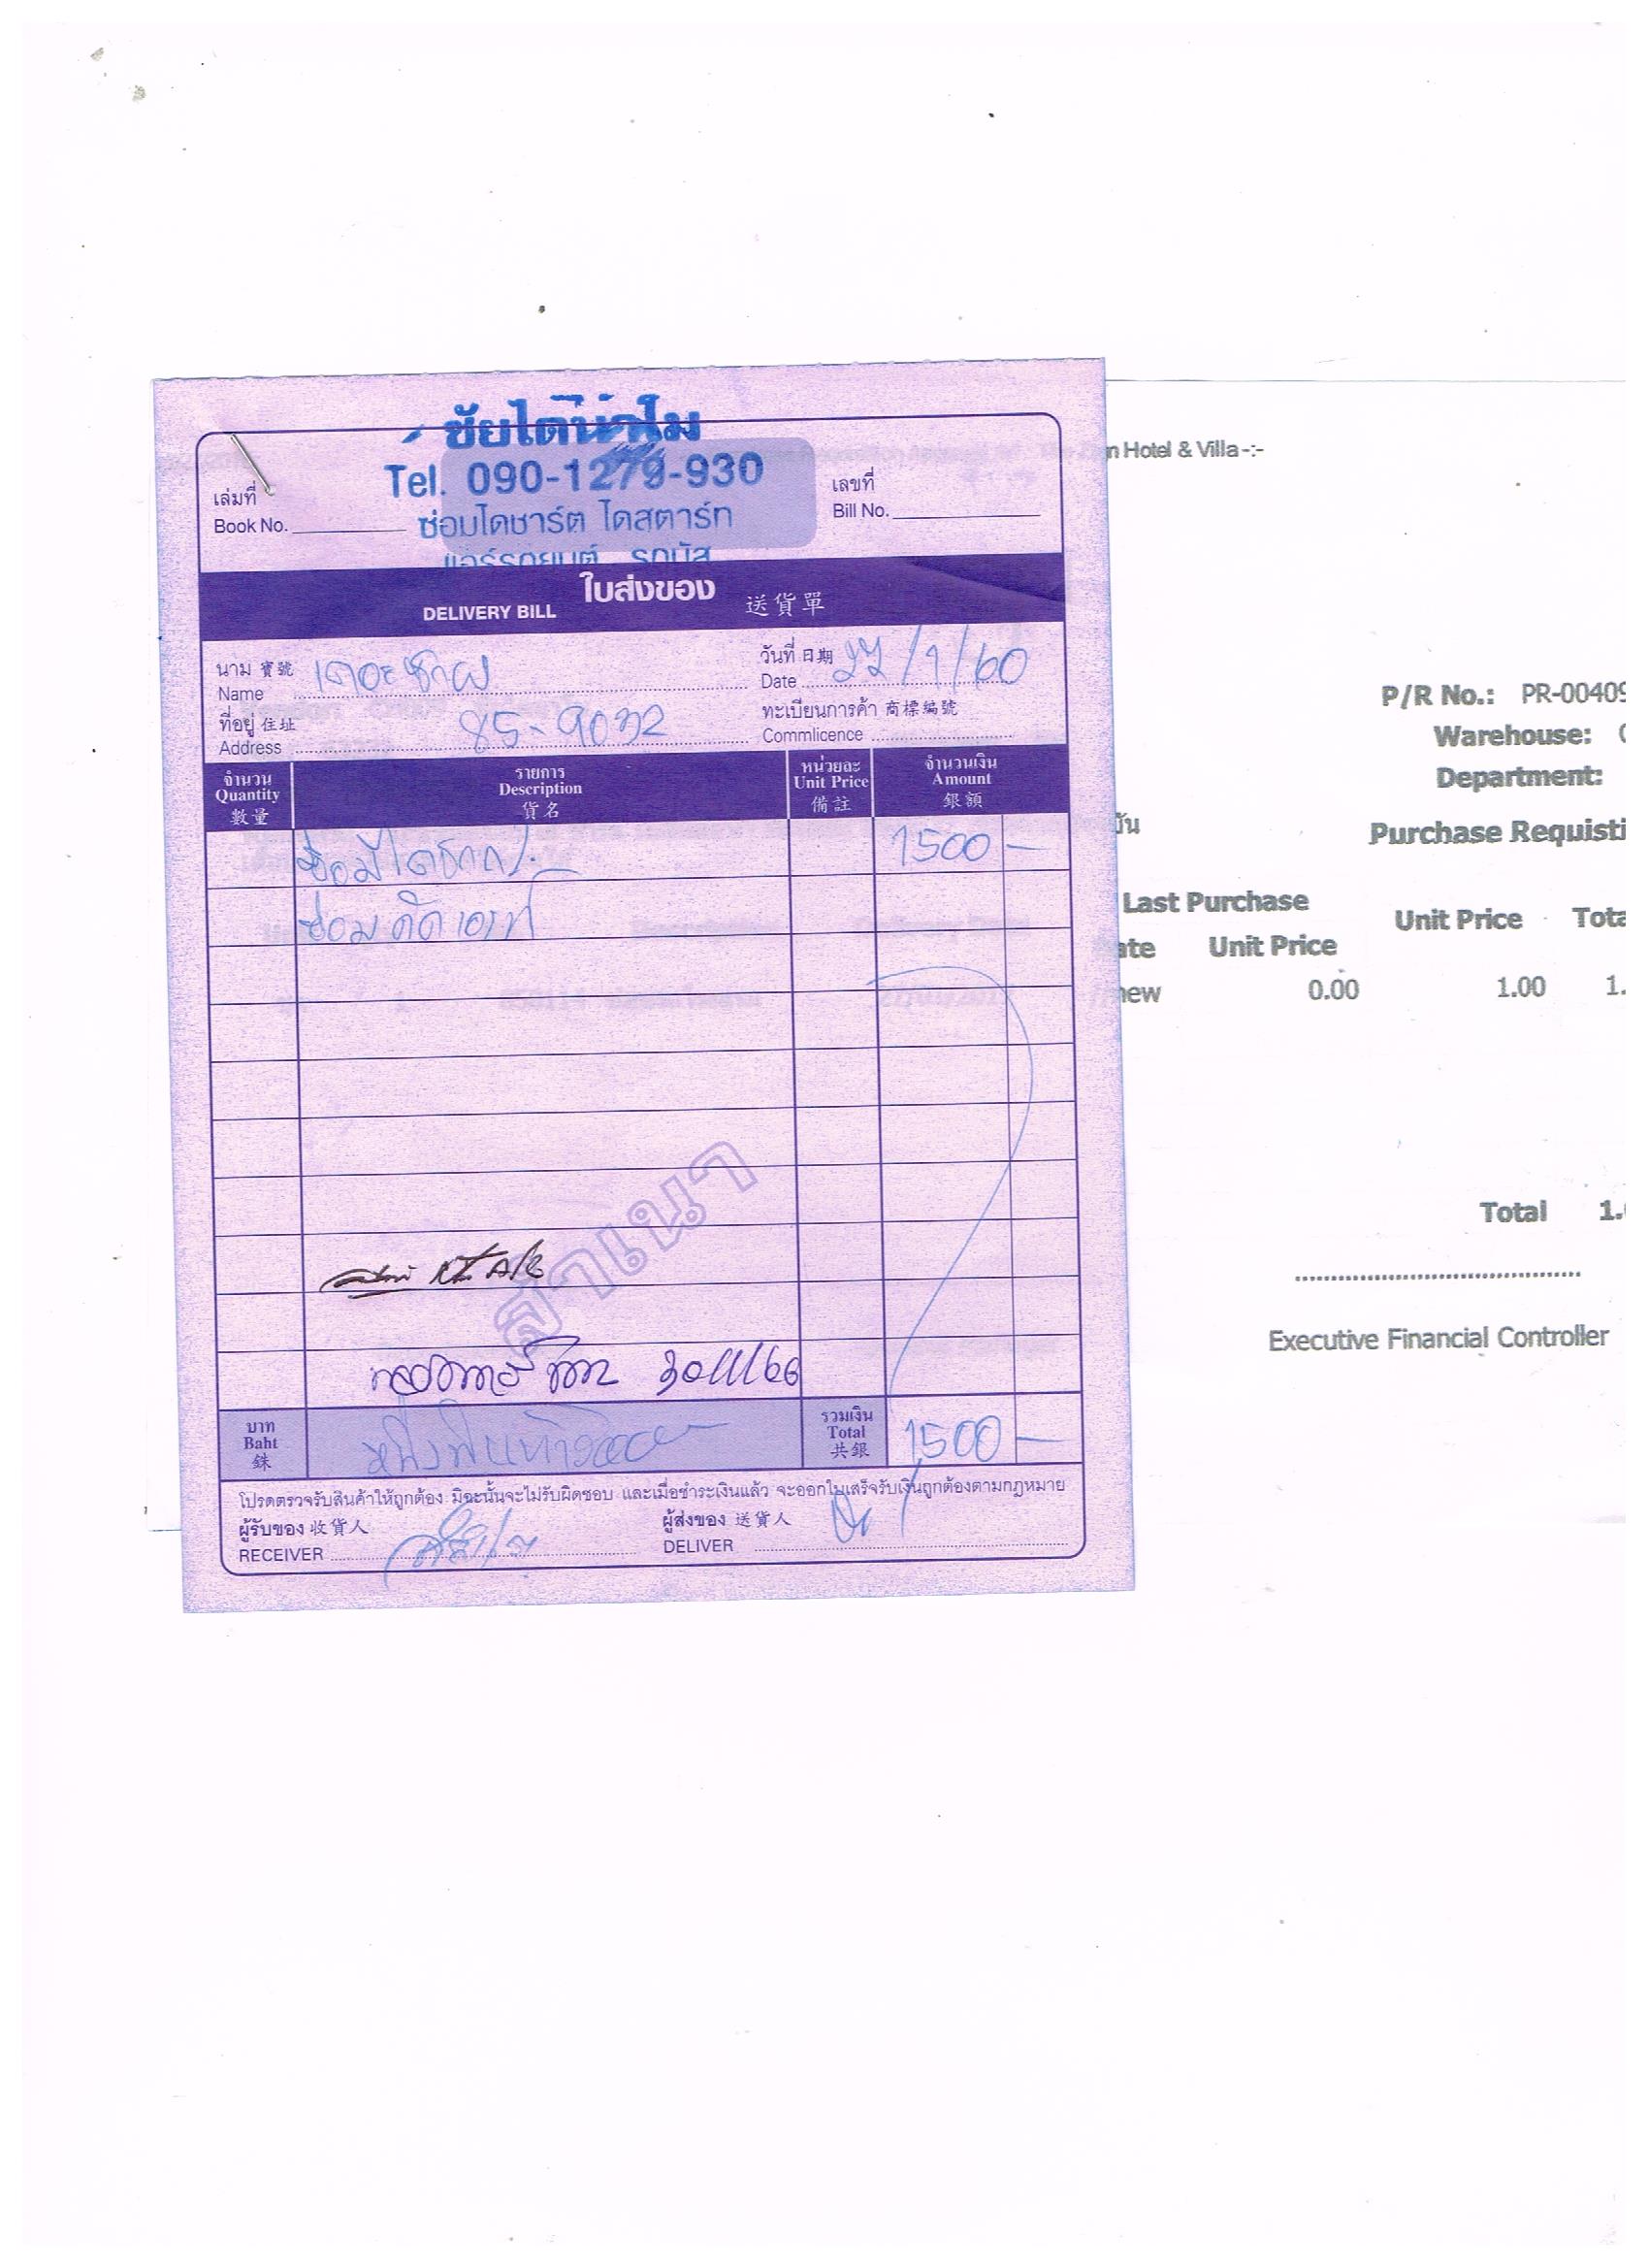 ชัยไดนาโม
Tel. 090-1279-930
ซ่อมไดชาร์ต ไดสตาร์ท
แอร์รถยนต์ รถบัส
เล่มที่
Book No.
เลขที่
Bill No.
ใบส่งของ
DELIVERY BILL 送貨單
นาม 寶號
Name
วันที่ 日期 27/1/60
Date
ที่อยู่ 住址 85-9032
Address
ทะเบียนการค้า 商標編號
Commlicence
จำนวน
Quantity
數量
รายการ
Description
貨名
หน่วยละ
Unit Price
備註
จำนวนเงิน
Amount
銀額
ซ่อมไดชาร์ท 1500 -
ซ่อมคัตเอาท์
สำเนา
บาท
Baht
銖
หนึ่งพันห้าร้อย
รวมเงิน
Total
共銀
1500 -
โปรดตรวจรับสินค้าให้ถูกต้อง มิฉะนั้นจะไม่รับผิดชอบ และเมื่อชำระเงินแล้ว จะออกใบเสร็จรับเงินถูกต้องตามกฎหมาย
ผู้รับของ 收貨人
RECEIVER
ผู้ส่งของ 送貨人
DELIVER
n Hotel & Villa -:-
P/R No.: PR-00409
Warehouse:
Department:
Purchase Requisti
Last Purchase
Unit Price Tota
ate Unit Price
new 0.00 1.00 1.
Total 1.
Executive Financial Controller